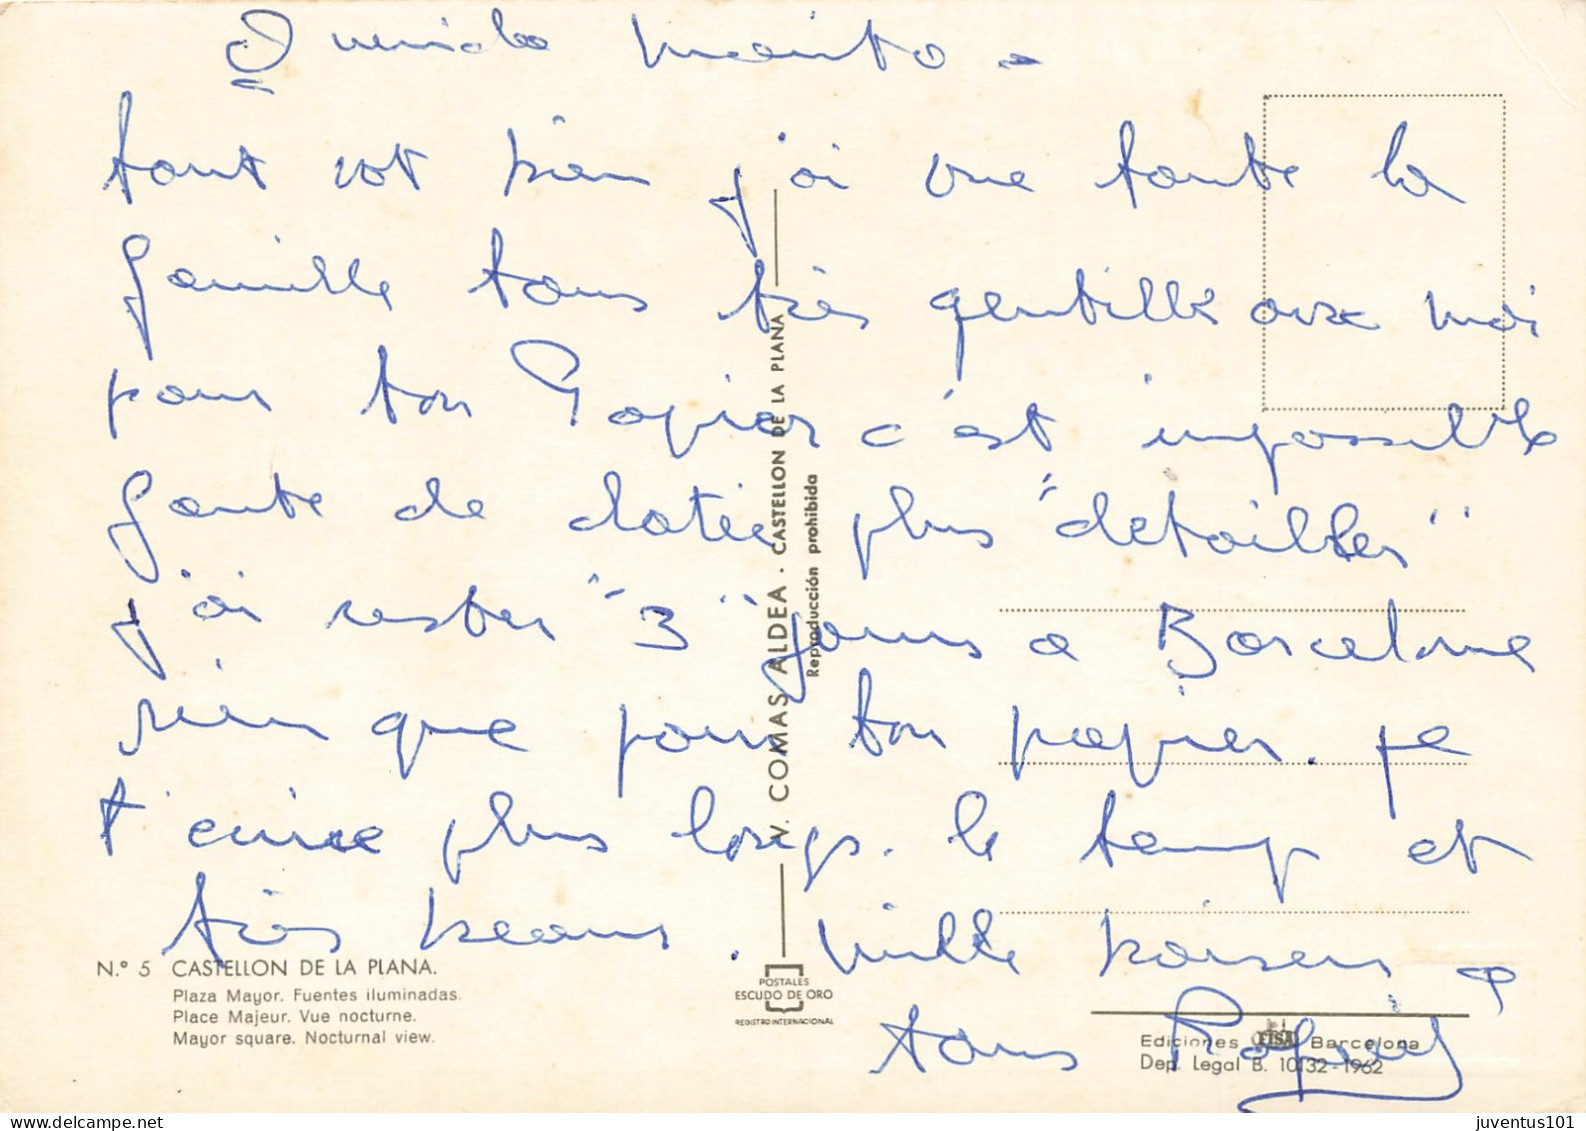 Querida
tout est bien j'ai vue toute la
famille tous très gentille avec moi
pour ton Papier c'est impossible
faute de datée plus "detailles"
j'ai rester "3" jours a Barcelone
rien que pour ton papier. je
t'ecrire plus longs. le temp et
très beaus. mille baisers a
tous Rafael
V. COMAS ALDEA · CASTELLON DE LA PLANA
Reproducción prohibida
N.º 5 CASTELLON DE LA PLANA.
Plaza Mayor. Fuentes iluminadas.
Place Majeur. Vue nocturne.
Mayor square. Nocturnal view.
POSTALES
ESCUDO DE ORO
REGISTRO INTERNACIONAL
Ediciones FISA Barcelona
Dep. Legal B. 10132-1962
juventus101